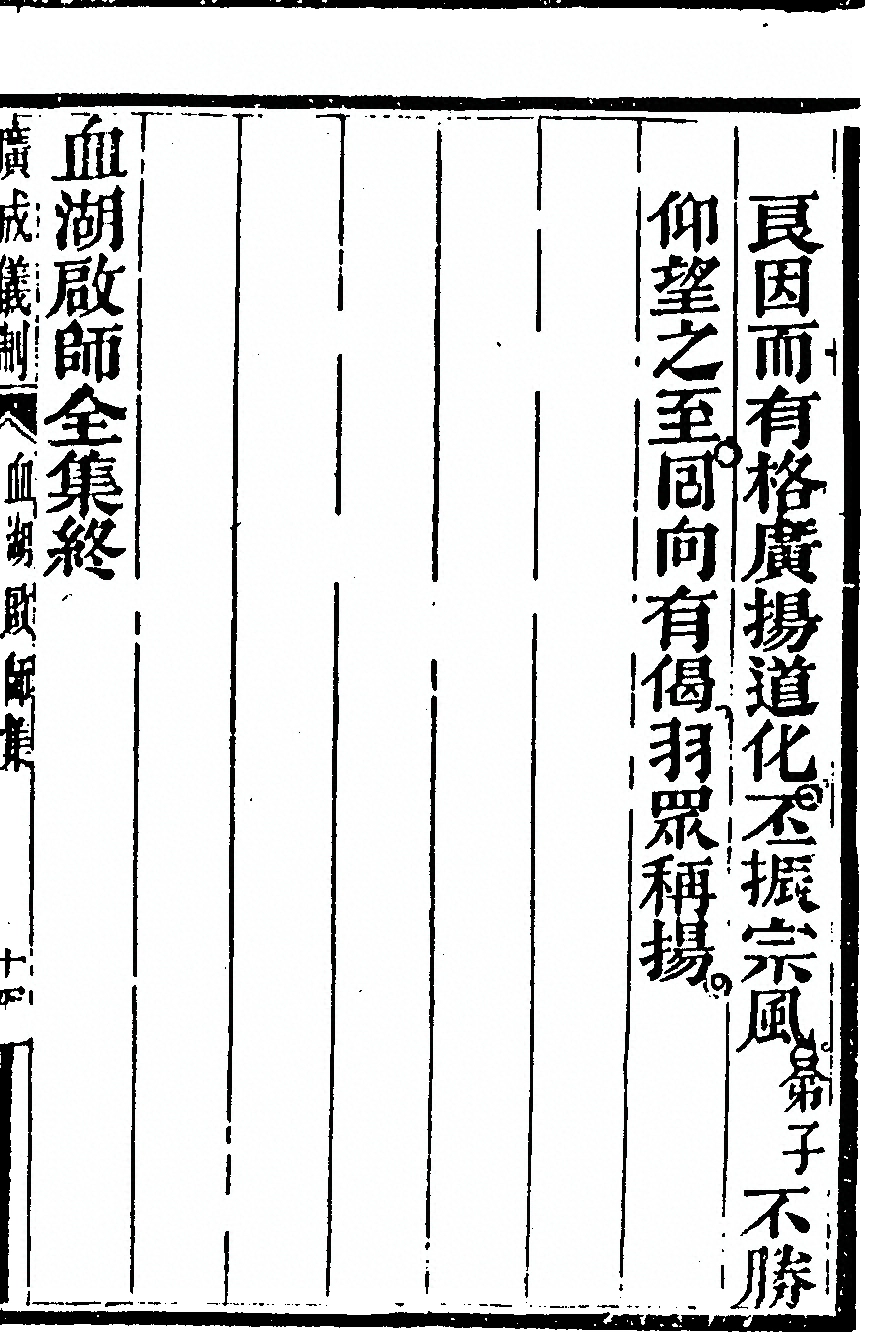 艮因而有格廣揚道化丕振宗風弟子不勝
仰望之至囘向有偈羽眾稱揚
血湖啟師全集終
廣成儀制 血湖啟師集 十四